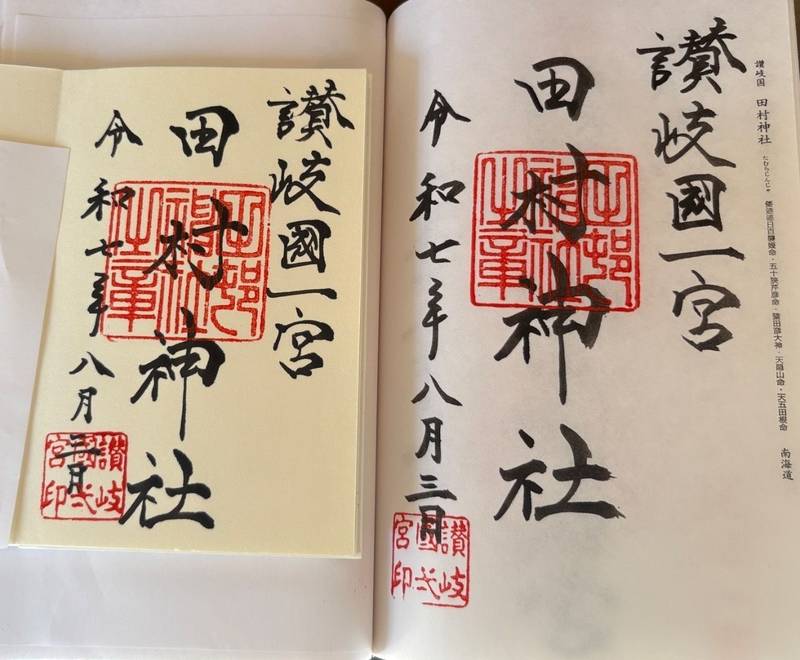 讃岐国 田村神社 たむらじんじゃ 倭迹迹日百襲姫命・五十狭芹彦命・猿田彦大神・天隠山命・天五田根命 南海道
讃岐國一宮
田村神社
令和七年八月三日
田邨神社之章
讃岐國弌宮印
讃岐國一宮
田村神社
令和七年八月三日
田邨神社之章
讃岐國弌宮印